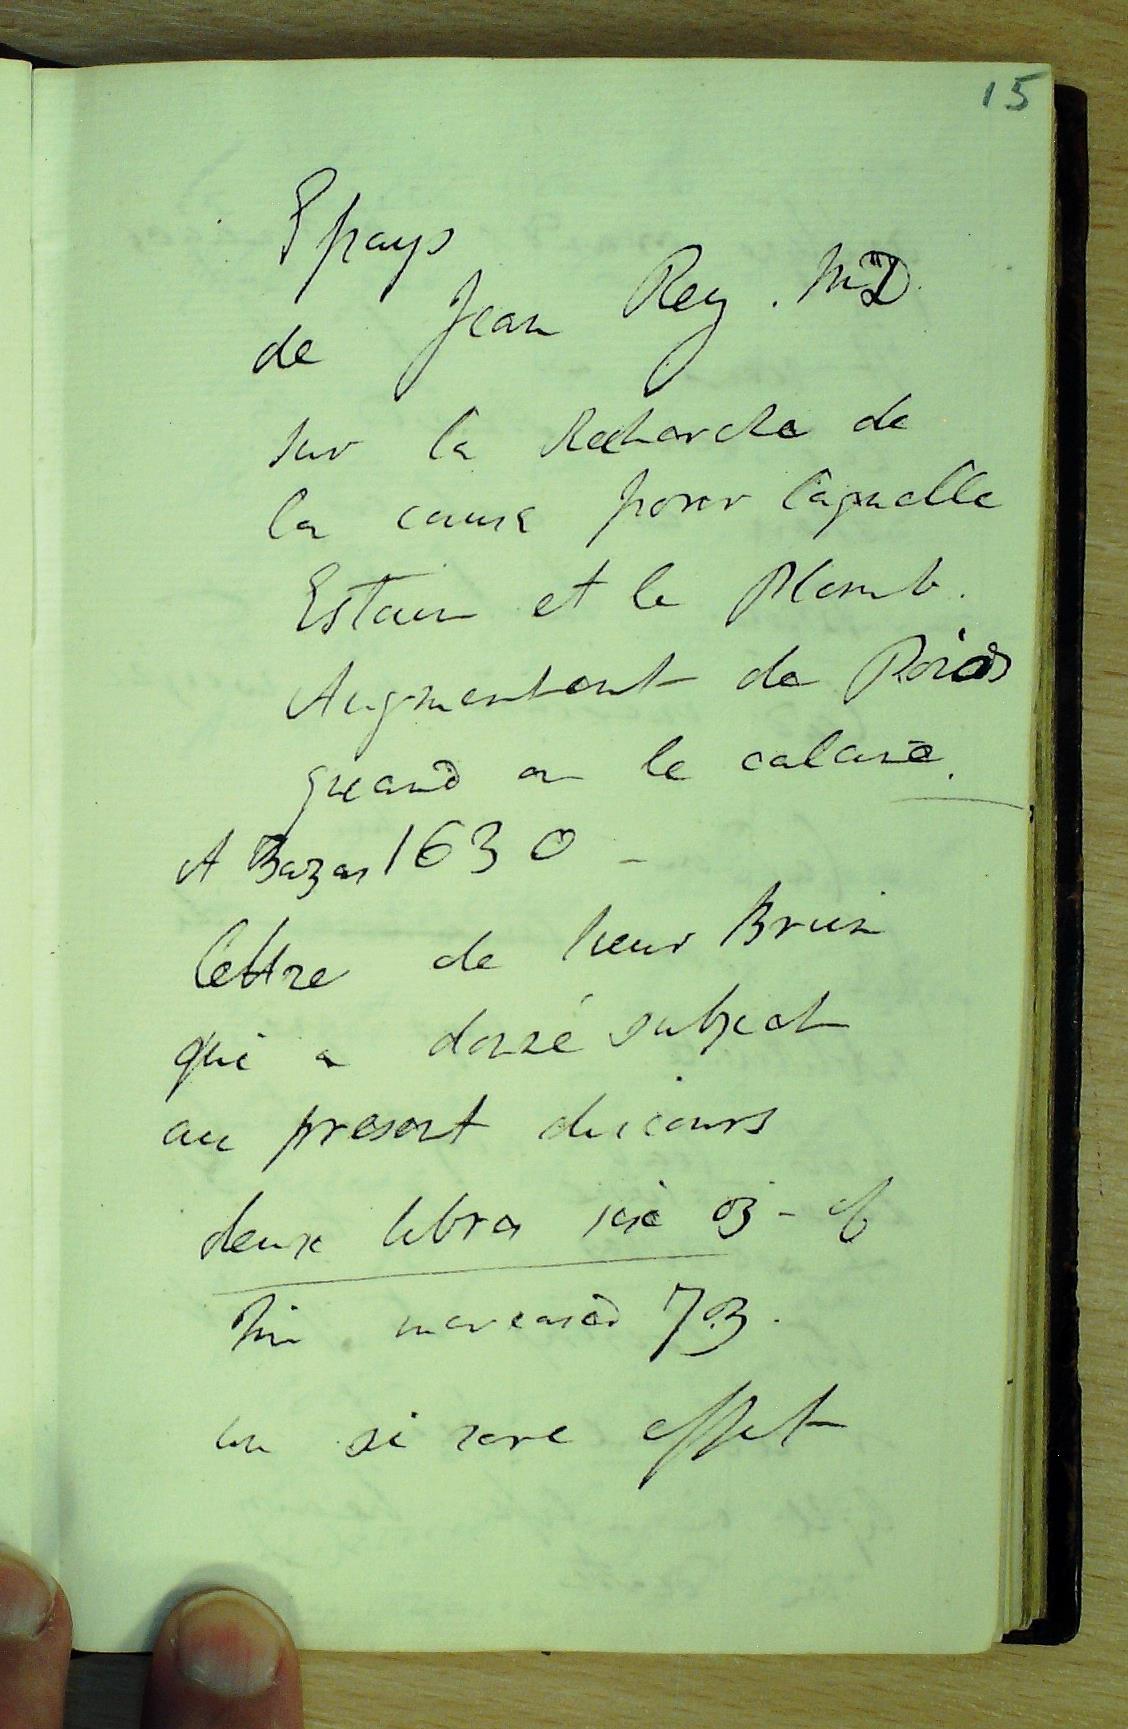 15
Essays
de Jean Rey . MD.
sur la Recherche de
la cause pour laquelle
Estain et le Plomb.
Augmentent de Poids
quand on le calcine.
A Bazas 1630 -
lettre de sieur Brun
qui a donné subject
au present discours
deux libres six oz - of
Tin increased 7 oz.
un si rare effet